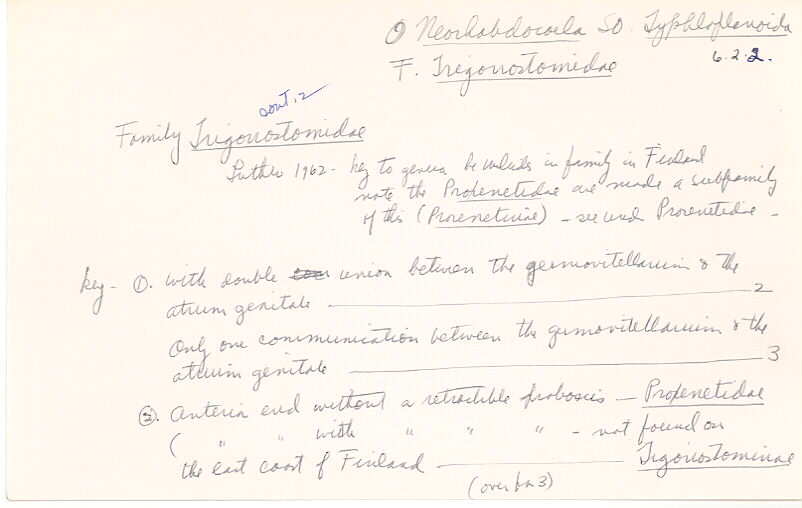 O Neorhabdocoela SO. Typhloplanoida
F. Trigonostomidae 6.2.2.
cont. 12
Family Trigonostomidae
Luther 1962 - key to genera he includes in family in Finland
note the Proxenetidae are made a subfamily
of this (Proxenetinae) - see under Proxenetidae -
key - 1. With double union between the germovitellarium & the
atrium genitale 2
Only one communication between the germovitellarium & the
atrium genitale 3
2. Anterior end without a retractible proboscis - Proxenetidae
( " " with " " " - not found on
the east coast of Finland Trigonostominae
(over for 3)